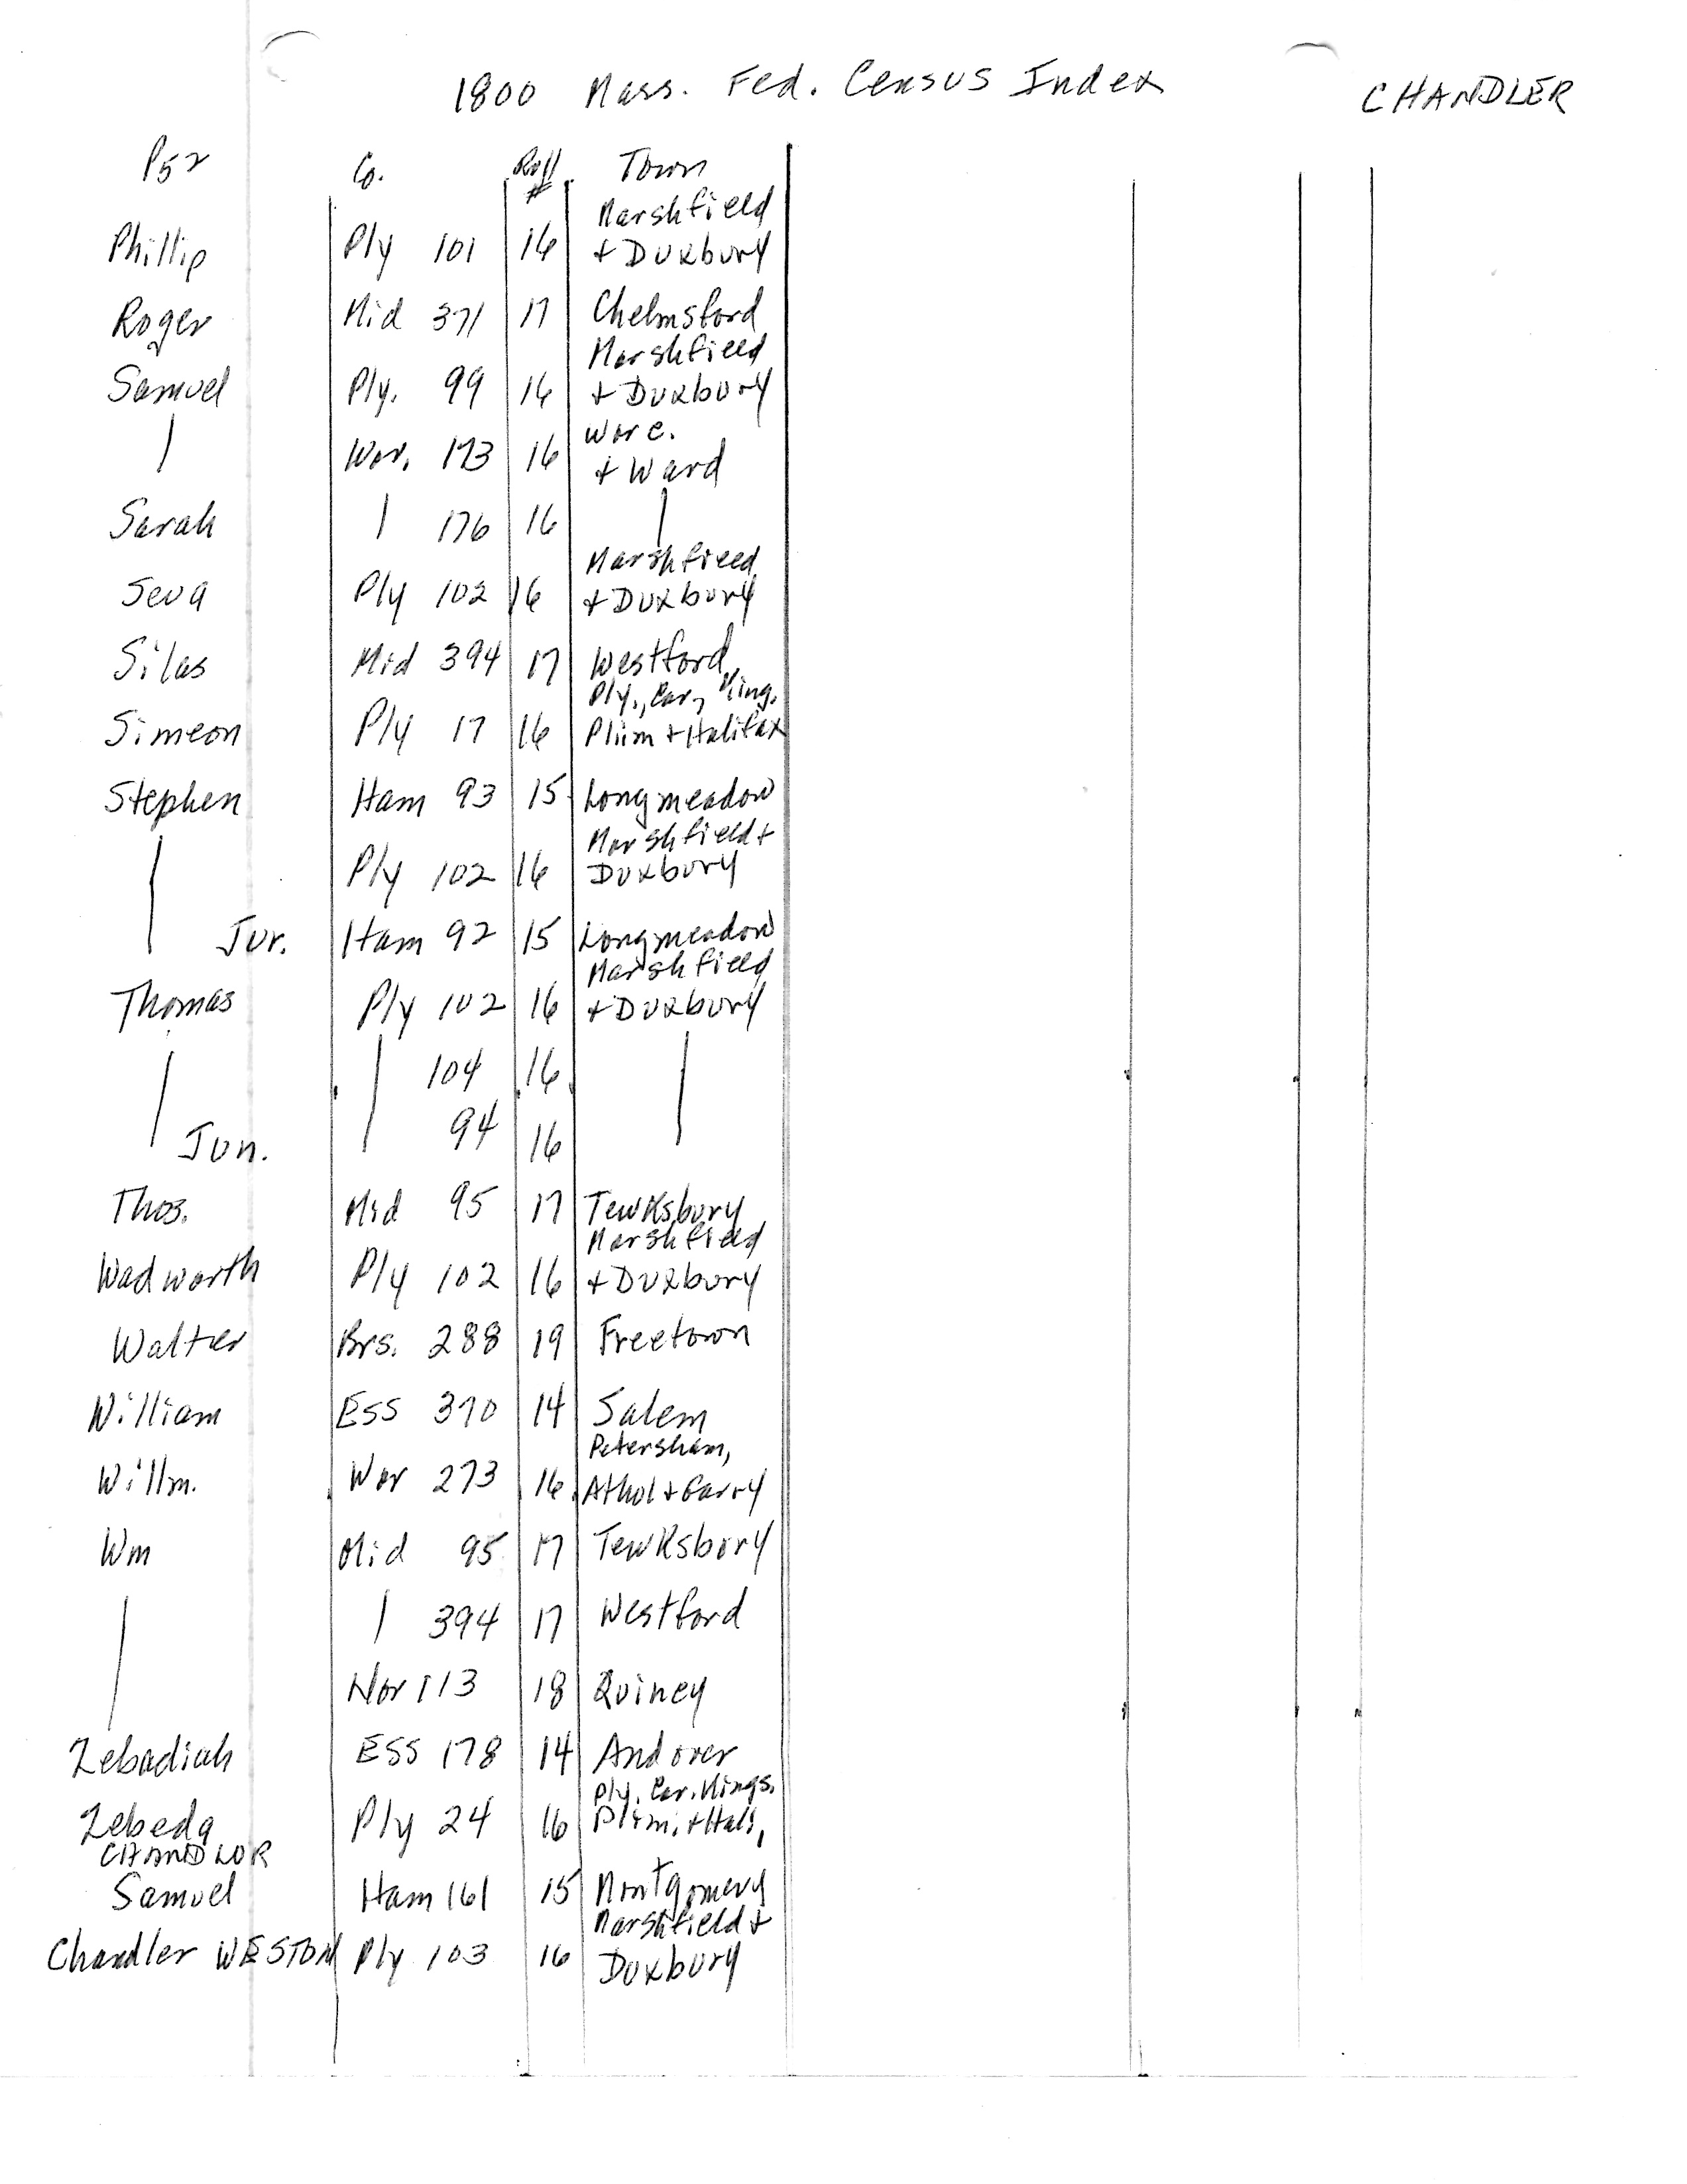 1800 Mass. Fed. Census Index CHANDLER
P52 Co. Roll # Town
Marshfield
Phillip Ply 101 16 + Duxbury
Roger Mid 371 17 Chelmsford
Marshfield
Samuel Ply. 99 16 + Duxbury
Worc.
Wor. 173 16 + Ward
Sarah 176 16
Marshfield
Seva Ply 102 16 + Duxbury
Silas Mid 394 17 Westford
Ply., Car, King.
Simeon Ply 17 16 Plim + Halifax
Stephen Ham 93 15 Longmeadow
Marshfield +
Ply 102 16 Duxbury
Jur. Ham 92 15 Longmeadow
Marshfield
Thomas Ply 102 16 + Duxbury
104 16
Jun. 94 16
Thos. Mid 95 17 Tewksbury
Marshfield
Wadworth Ply 102 16 + Duxbury
Walter Brs. 288 19 Freetown
William Ess 370 14 Salem
Petersham,
Willm. Wor 273 16 Athol + Garry
Wm Mid 95 17 Tewksbury
394 17 Westford
Nor 113 18 Quincy
Zebadiah Ess 178 14 Andover
Ply. Car. Kings.
Zebeda Ply 24 16 Plim. + Hali,
CHANDLOR
Samuel Ham 161 15 Montgomery
Marshfield +
Chandler WESTON Ply 103 16 Duxbury